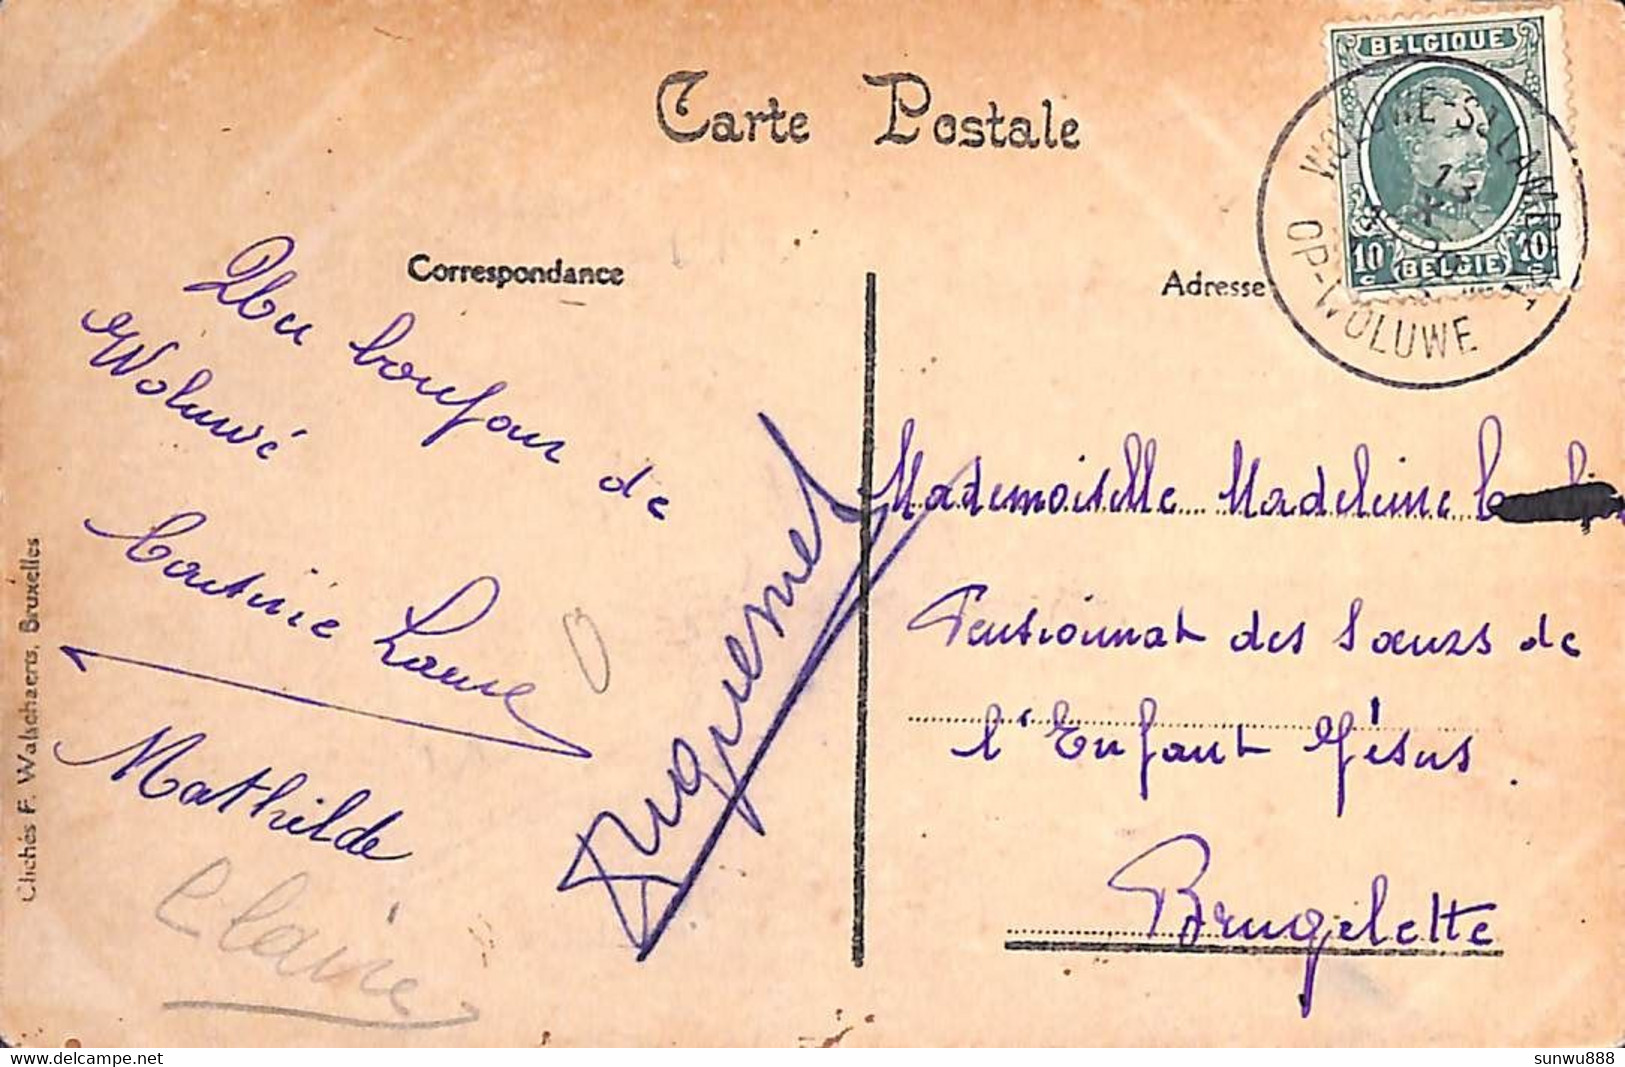 Carte Postale
Correspondance
Adresse
BELGIQUE
10 c BELGIË 10 c
WOLUWE-ST-LAMBERT
OP-WOLUWE
13
X
Un bonjour de
Woluwé
Laure
Mathilde
Claire
Duquesnel
Mademoiselle Madeleine
Pensionnat des Sœurs de
l'Enfant Jésus.
Brugelette
Clichés F. Walschaerts, Bruxelles
delcampe.net
sunwu888